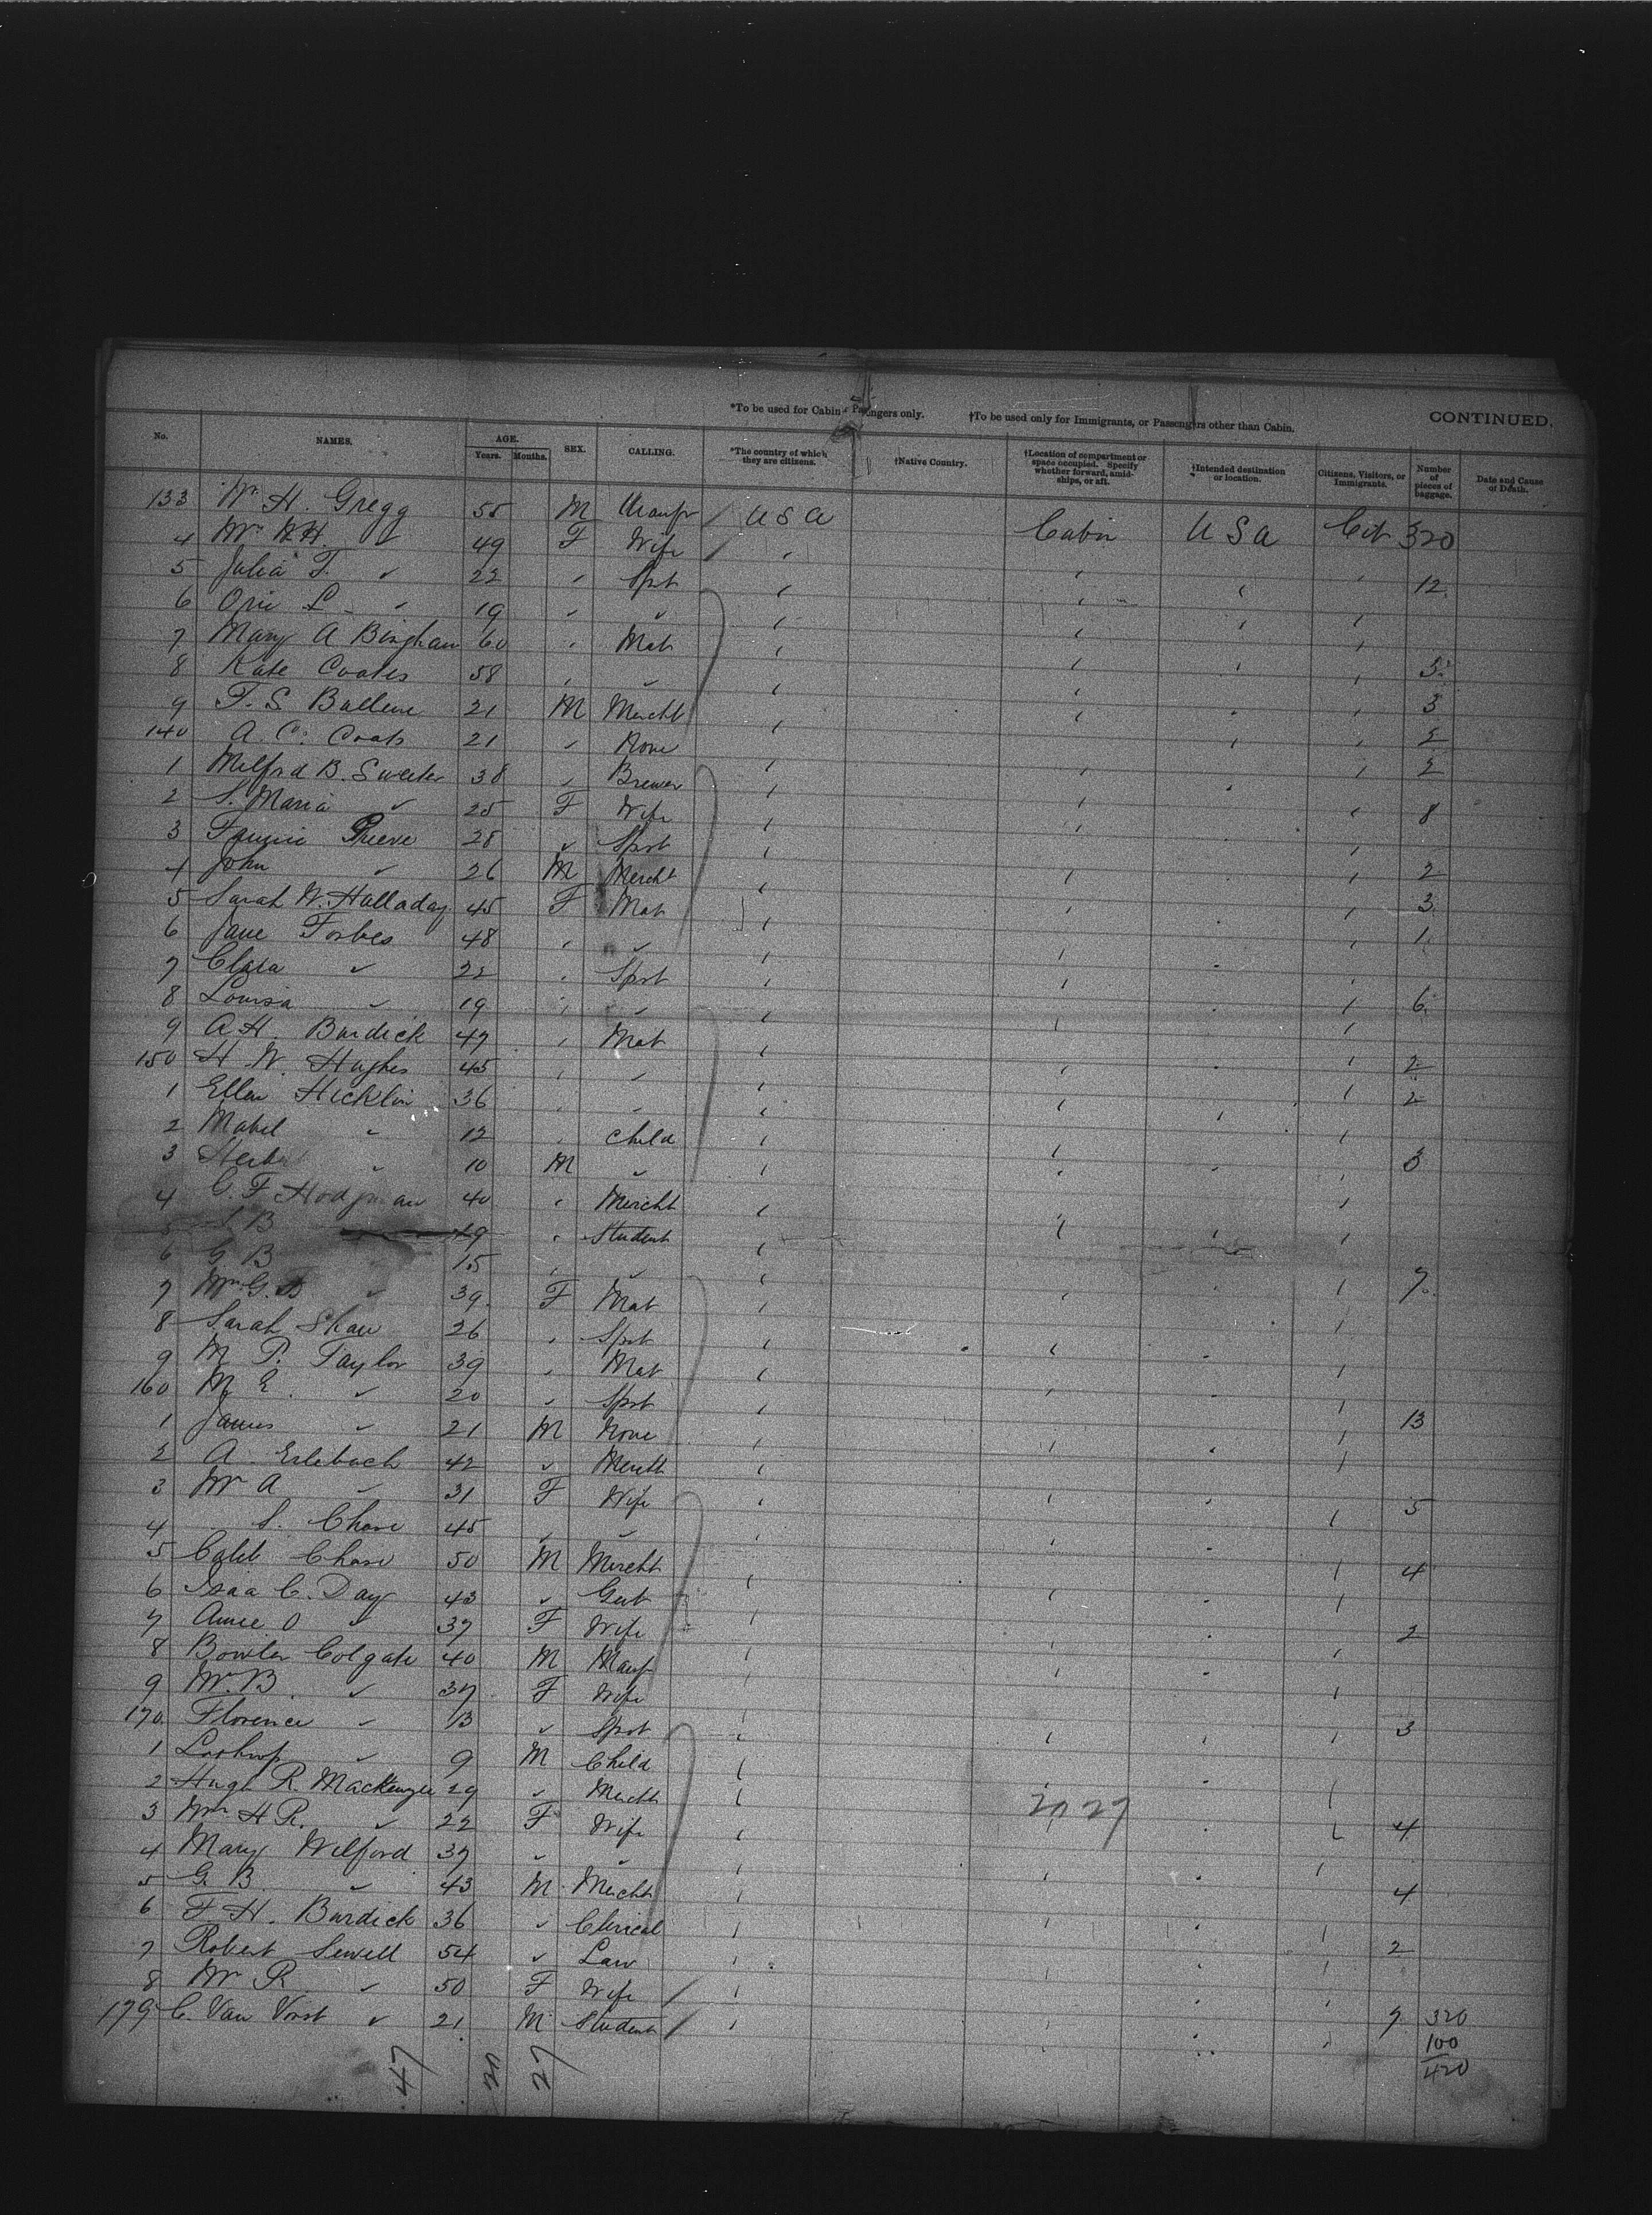 *To be used for Cabin Passengers only. †To be used only for Immigrants, or Passengers other than Cabin. CONTINUED.
No. NAMES. AGE. Years. Months. SEX. CALLING. *The country of which they are citizens. †Native Country. †Location of compartment or space occupied. Specify whether forward, amidships, or aft. †Intended destination or location. Citizens, Visitors, or Immigrants. Number of pieces of baggage. Date and Cause of Death.
133 Wm H. Gregg 55 M Manfr USA Cabin USA Cit 320
4 Mrs W.H. " 49 F Wife
5 Julia F. " 22 " Spst " 12
6 L " 19 " "
7 Mary A Bingham 60 " Mat 5
8 Kate Coates 58 " " 3
9 F. S. 21 M Mercht 2
140 A. C. Coats 21 " None 2
1 Milford B. 38 " Brewer 8
2 S. Maria " 25 F Wife
3 Fannie Reeve 28 " Spst 2
4 John " 26 M Mercht 3
5 Sarah W. Halladay 45 F Mat 1
6 Jane Forbes 48 " "
7 Clara " 22 " Spst 6
8 Louisa " 19 " "
9 A H Burdick 47 " Mat 2
150 H. W. Hughes 45 " " 2
1 Ellen Hicklin 36 " "
2 Mabel " 12 " Child 3
3 " 10 M "
4 C. F Hodgman 40 " Mercht
5 B 19 " Student
6 G B 15 " " 7
7 Mrs G. B " 39 F Mat
8 Sarah Shaw 26 " Spst
9 M P. Taylor 39 " Mat
160 M E. " 20 " Spst 13
1 James " 21 M None
2 A. Erlebach 42 " Mercht
3 Mrs A " 31 F Wife 5
4 S. Chase 45 " "
5 Caleb Chase 50 M Mercht 4
6 Isaa C. Day 43 " Gent
7 Annie O " 37 F Wife 2
8 Bowles Colgate 40 M Manfr
9 Mrs B. " 37 F Wife
170 Florence " 13 " Spst 3
1 Lathrop " 9 M Child
2 Hugh R. Mackenzie 29 " Mercht
3 Mrs H R. " 22 F Wife 20 27 4
4 Mary Wilford 37 " "
5 G. B " 43 M Mercht 4
6 F. H. Burdick 36 " Clerical
7 Robert Sewell 54 " Law 2
8 Mrs R " 50 F Wife
179 C. Van Vorst " 21 M Student 7 320
100
420
47 20 27